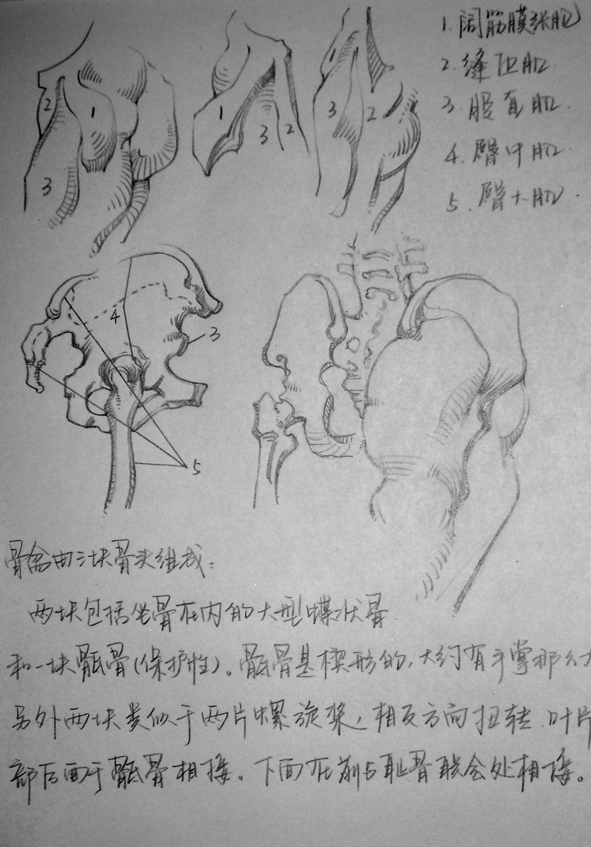 1. 阔筋膜张肌
2. 缝匠肌.
3. 股直肌.
4. 臀中肌.
5. 臀大肌.
2
1
3
1
3
2
1
3
2
4
3
5
骨盆由三块骨头组成:
两块包括坐骨在内的大型蝶状骨
和一块骶骨(保护性)。骶骨是楔形的,大约有手掌那么大
另外两块类似于两片螺旋桨,相反方向扭转.叶片
部后面于骶骨相接。下面在前与耻骨联合处相接。